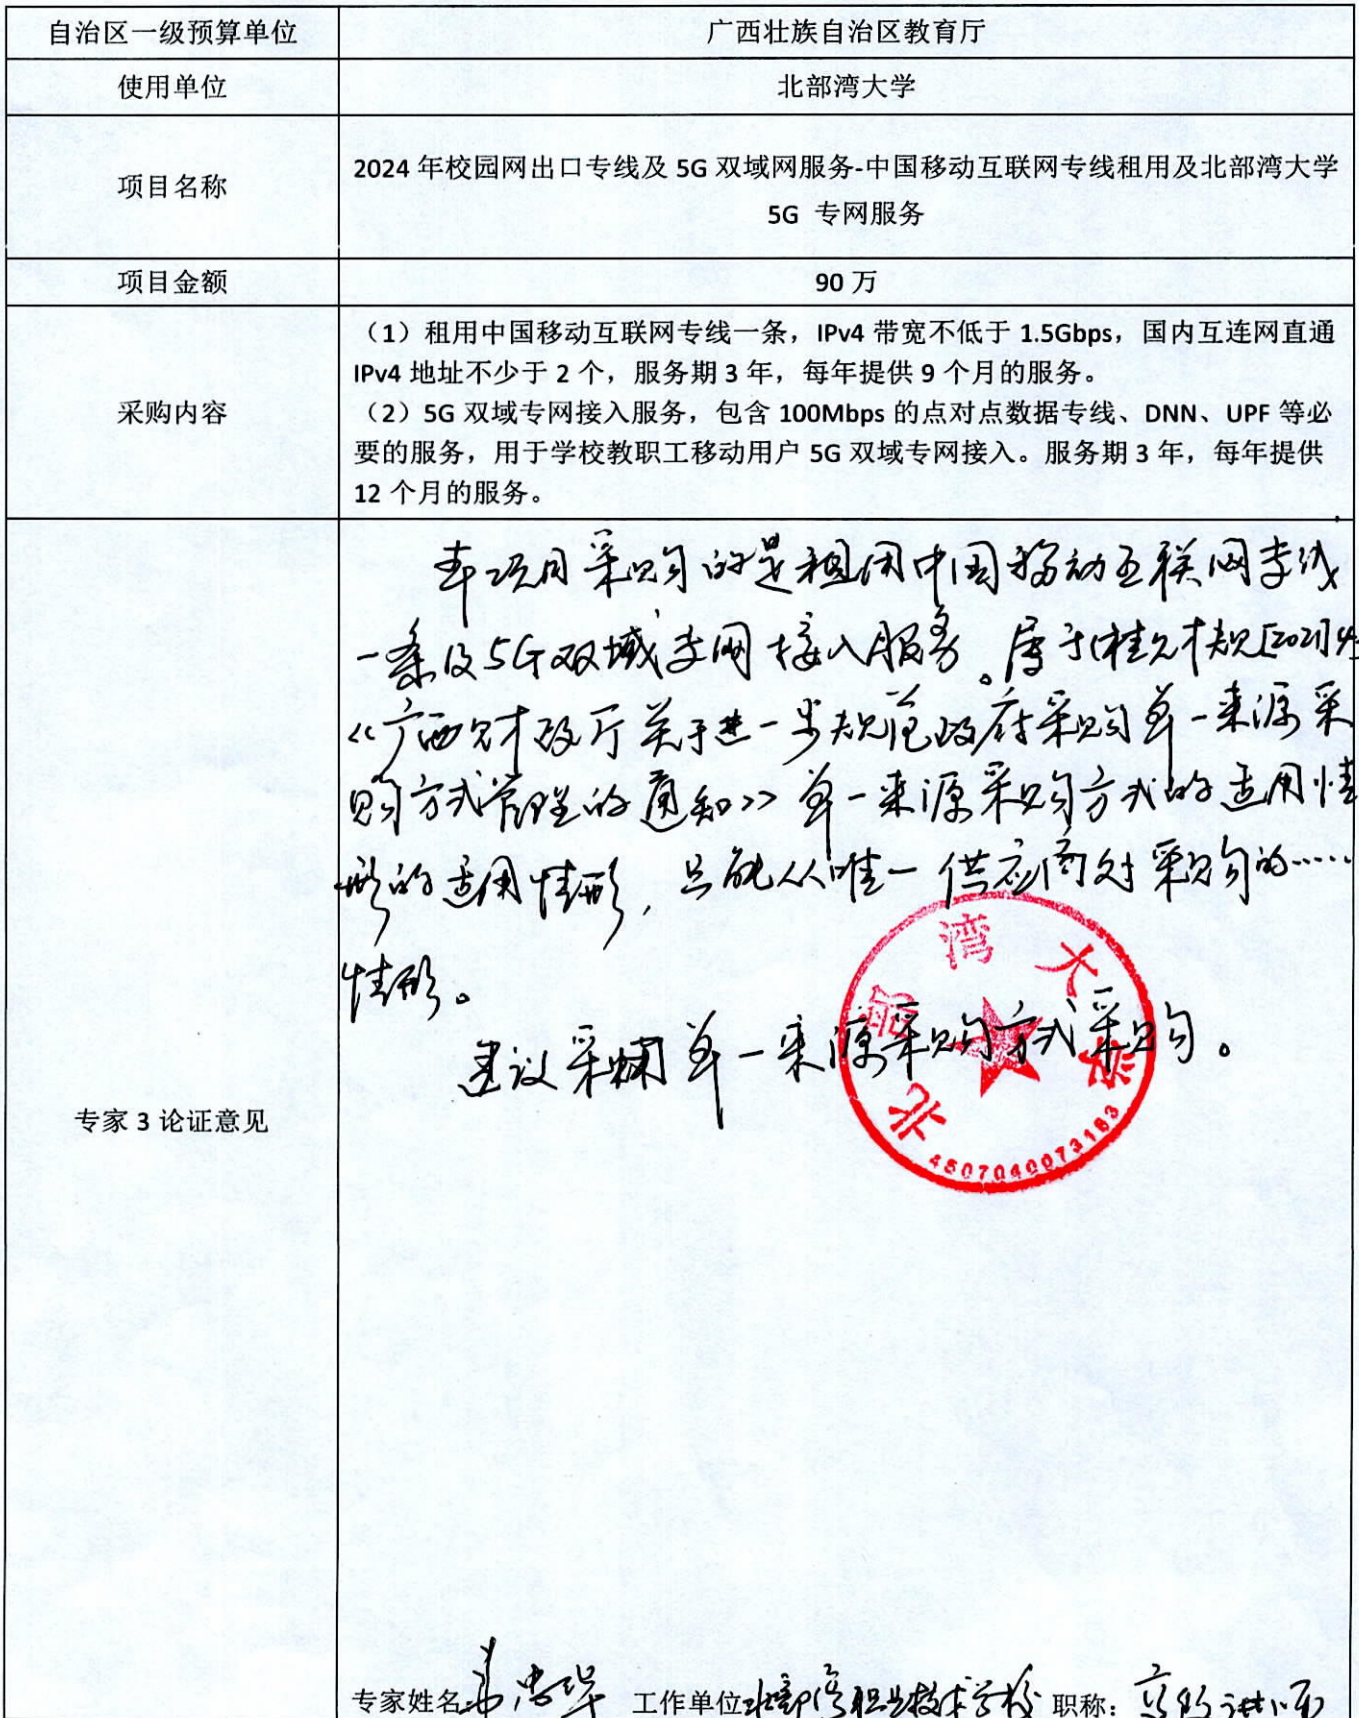 自治区一级预算单位 广西壮族自治区教育厅
使用单位 北部湾大学
项目名称 2024 年校园网出口专线及 5G 双域网服务-中国移动互联网专线租用及北部湾大学
5G 专网服务
项目金额 90 万
采购内容
（1）租用中国移动互联网专线一条，IPv4 带宽不低于 1.5Gbps，国内互连网直通
IPv4 地址不少于 2 个，服务期 3 年，每年提供 9 个月的服务。
（2）5G 双域专网接入服务，包含 100Mbps 的点对点数据专线、DNN、UPF 等必
要的服务，用于学校教职工移动用户 5G 双域专网接入。服务期 3 年，每年提供
12 个月的服务。
专家 3 论证意见
本项目采购的是租用中国移动互联网专线
一条及5G双域专网接入服务。属于(桂财规[2021]
《广西财政厅关于进一步规范政府采购单一来源采
购方式管理的通知》单一来源采购方式的适用情
形的适用情形，只能从唯一供应商处采购的……
情形。
建议采用单一来源采购方式采购。
北部湾大学
4507040073163
专家姓名 忠 工作单位 北部湾职业技术学校 职称：高级讲师